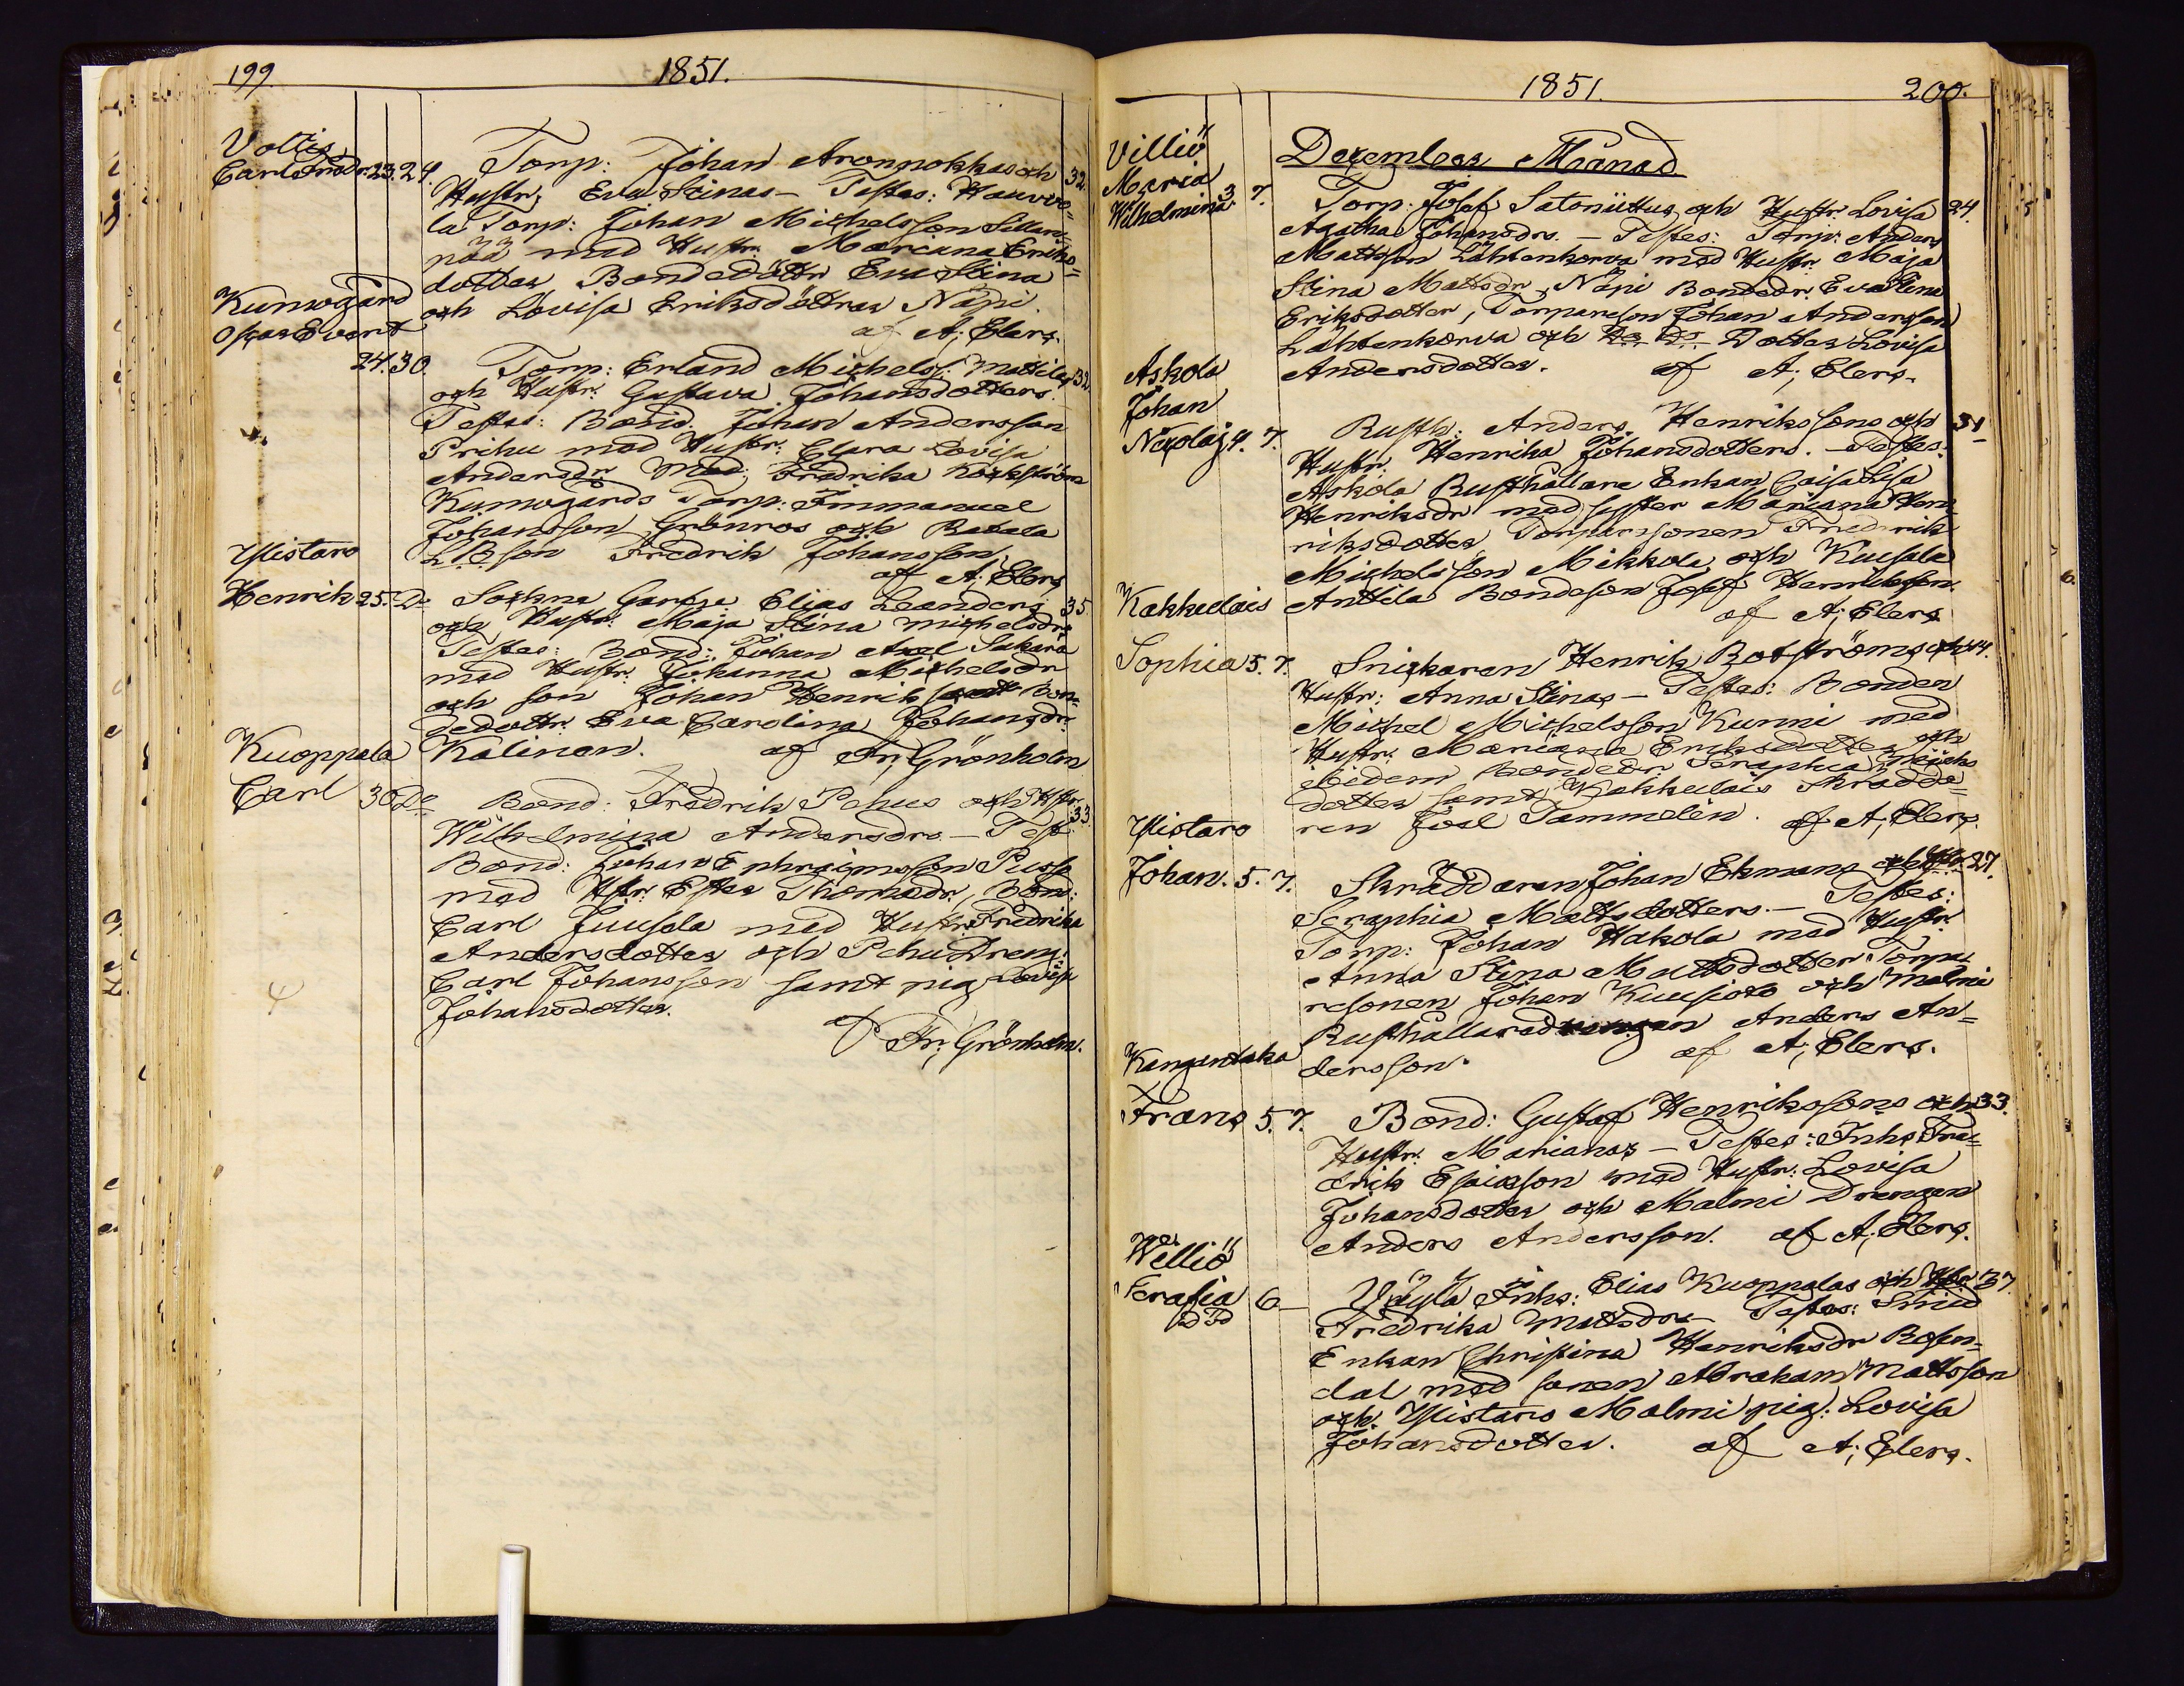 199. 1851.
Voltis
Carl Andr: 23. 24. Torp: Johan Aronnokkas och 32.
Hustr: Eva Stinas – Testes: Hauvve=
la Torp: Johan Michelsson Sillan=
pää med Hustr. Mariana Eriks=
dotter, Bondedöttr Eva Stina
och Lovisa Eriksdöttrar Näpi.
af A; Elers.
Kunnogård
Oscar Evert
24. 30. Torp: Erland Michelss: Mattilas 32.
och Hustr. Gustava Johansdotters.
Testes: Bond. Johan Andersson
Prihu med Hustr: Clara Lovisa
Andersdr Mad: Fredrika
Kunnogårds Torp: Immanuel
Johansson Grönros och
son Fredrik Johansson.
af A; Elers
Ylistaro
Henrik 25. Do Sockne Garfva Elias Leanders 35
och Hustr: Maja Stina Michelsdrs
Testes: Bond: Johan Axel Sakara
med Hustr. Johanna Michelsdr
och son Johan Henrik samt Bon=
dedottr. Eva Carolina Johansdr.
Kalinen. af Fr; Grönholm
Kuoppala
Carl 30 Do Bond: Fredrik Pehus och Hstr. 33.
Wilhelmina Andersdrs – Test:
Bond: Johan Ephraimsson Pussa
med Hstr: Ester Thomasdr, Bond:
Carl Juusela med Hustr. Fredrika
Andersdotter och Pehu Dreng:
Carl Johansson samt pig Lovisa
Johansdotter.
af Fr; Grönholm.
1851. 200.
Decembers Månad
Williö
Maria
Wilhelmina 3. 7. Torp: Josef Satoniittus och Hustr. Lovisa 24.
Agatha Johansdrs. – Testes: Torp: Anders
Mattsson Lähtenkorva med Hustr. Maja
Stina Mattsdr, Näpi Bondedr. Eva Stina
Eriksdotter, Torpareson Johan Andersson
Lähtenkorva och Do Do Dotter Lovisa
Andersdotter. af A; Elers.
Askola
Johan
Nicolaj 4. 7. Rusth: Anders Henrikssons och 31
Hustr. Henrika Johansdotters. – Testes:
Askola Rusthållare Enkan Caisa Lisa
Henriksdr med syster Mariana Hen=
riksdotter, Torparesonen Fredrik
Michelsson Mikkola och Kuusela
Anttila Bondeson Josef Henriksson.
af A; Elers
Kakkulais
Sophia 5. 7. Snickaren Henrik Boströms och 44.
Hustr: Anna Stinas – Testes: Bonden
Michel Michelsson Kunni med
Hustr. Mariana Eriksdotter och
ibidem Bondedr Seraphia
dotter samt Kakkulais Skrädda=
ren Joel Tammelin. af A; Elers.
Ylistaro
Johan. 5. 7. Skräddaren Johan Ekmans och Hstr. 27.
Seraphia Mattsdotters. – Testes:
Torp: Johan Hakola med Hustr.
Anna Stina Mattsdotter Torpa=
resonen Johan Kuusisto och Malmi
Rusthållaredrengen Anders An=
dersson. af A; Elers.
Kangantaka
Frans 5. 7. Bond: Gustaf Henrikssons och 33.
Hustr. Marianas – Testes: Inhs Fre=
drik Esaiasson med Hustr: Lovisa
Johansdotter och Malmi Drengen
Anders Andersson. af A; Elers.
Williö
Serafia 6 – Inhs: Elias Kuoppalas och Hstr 37.
Fredrika Mattsdrs – Testes: Smed
Enkan Christina Henriksdr Rosen=
dal med sonen Abraham Mattsson
och Ylistaro Malmi pig: Lovisa
Johansdotter. af A; Elers.